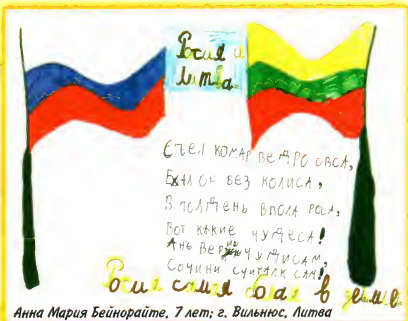 Росия и
литва
СЪЕЛ КОМАР ВЕДРО ОВСА,
ЕХАЛ ОН БЕЗ КОЛИСА,
В ПОЛДЕНЬ ВПОЛА РОСА,
ВОТ КАКИЕ ЧУДЕСА!
АНЕ ЧУДИСАМ,
СОЧИНИ СЧИТАЛК САМ!
Росия самая в
Анна Мария Бейнорайте, 7 лет; г. Вильнюс, Литва